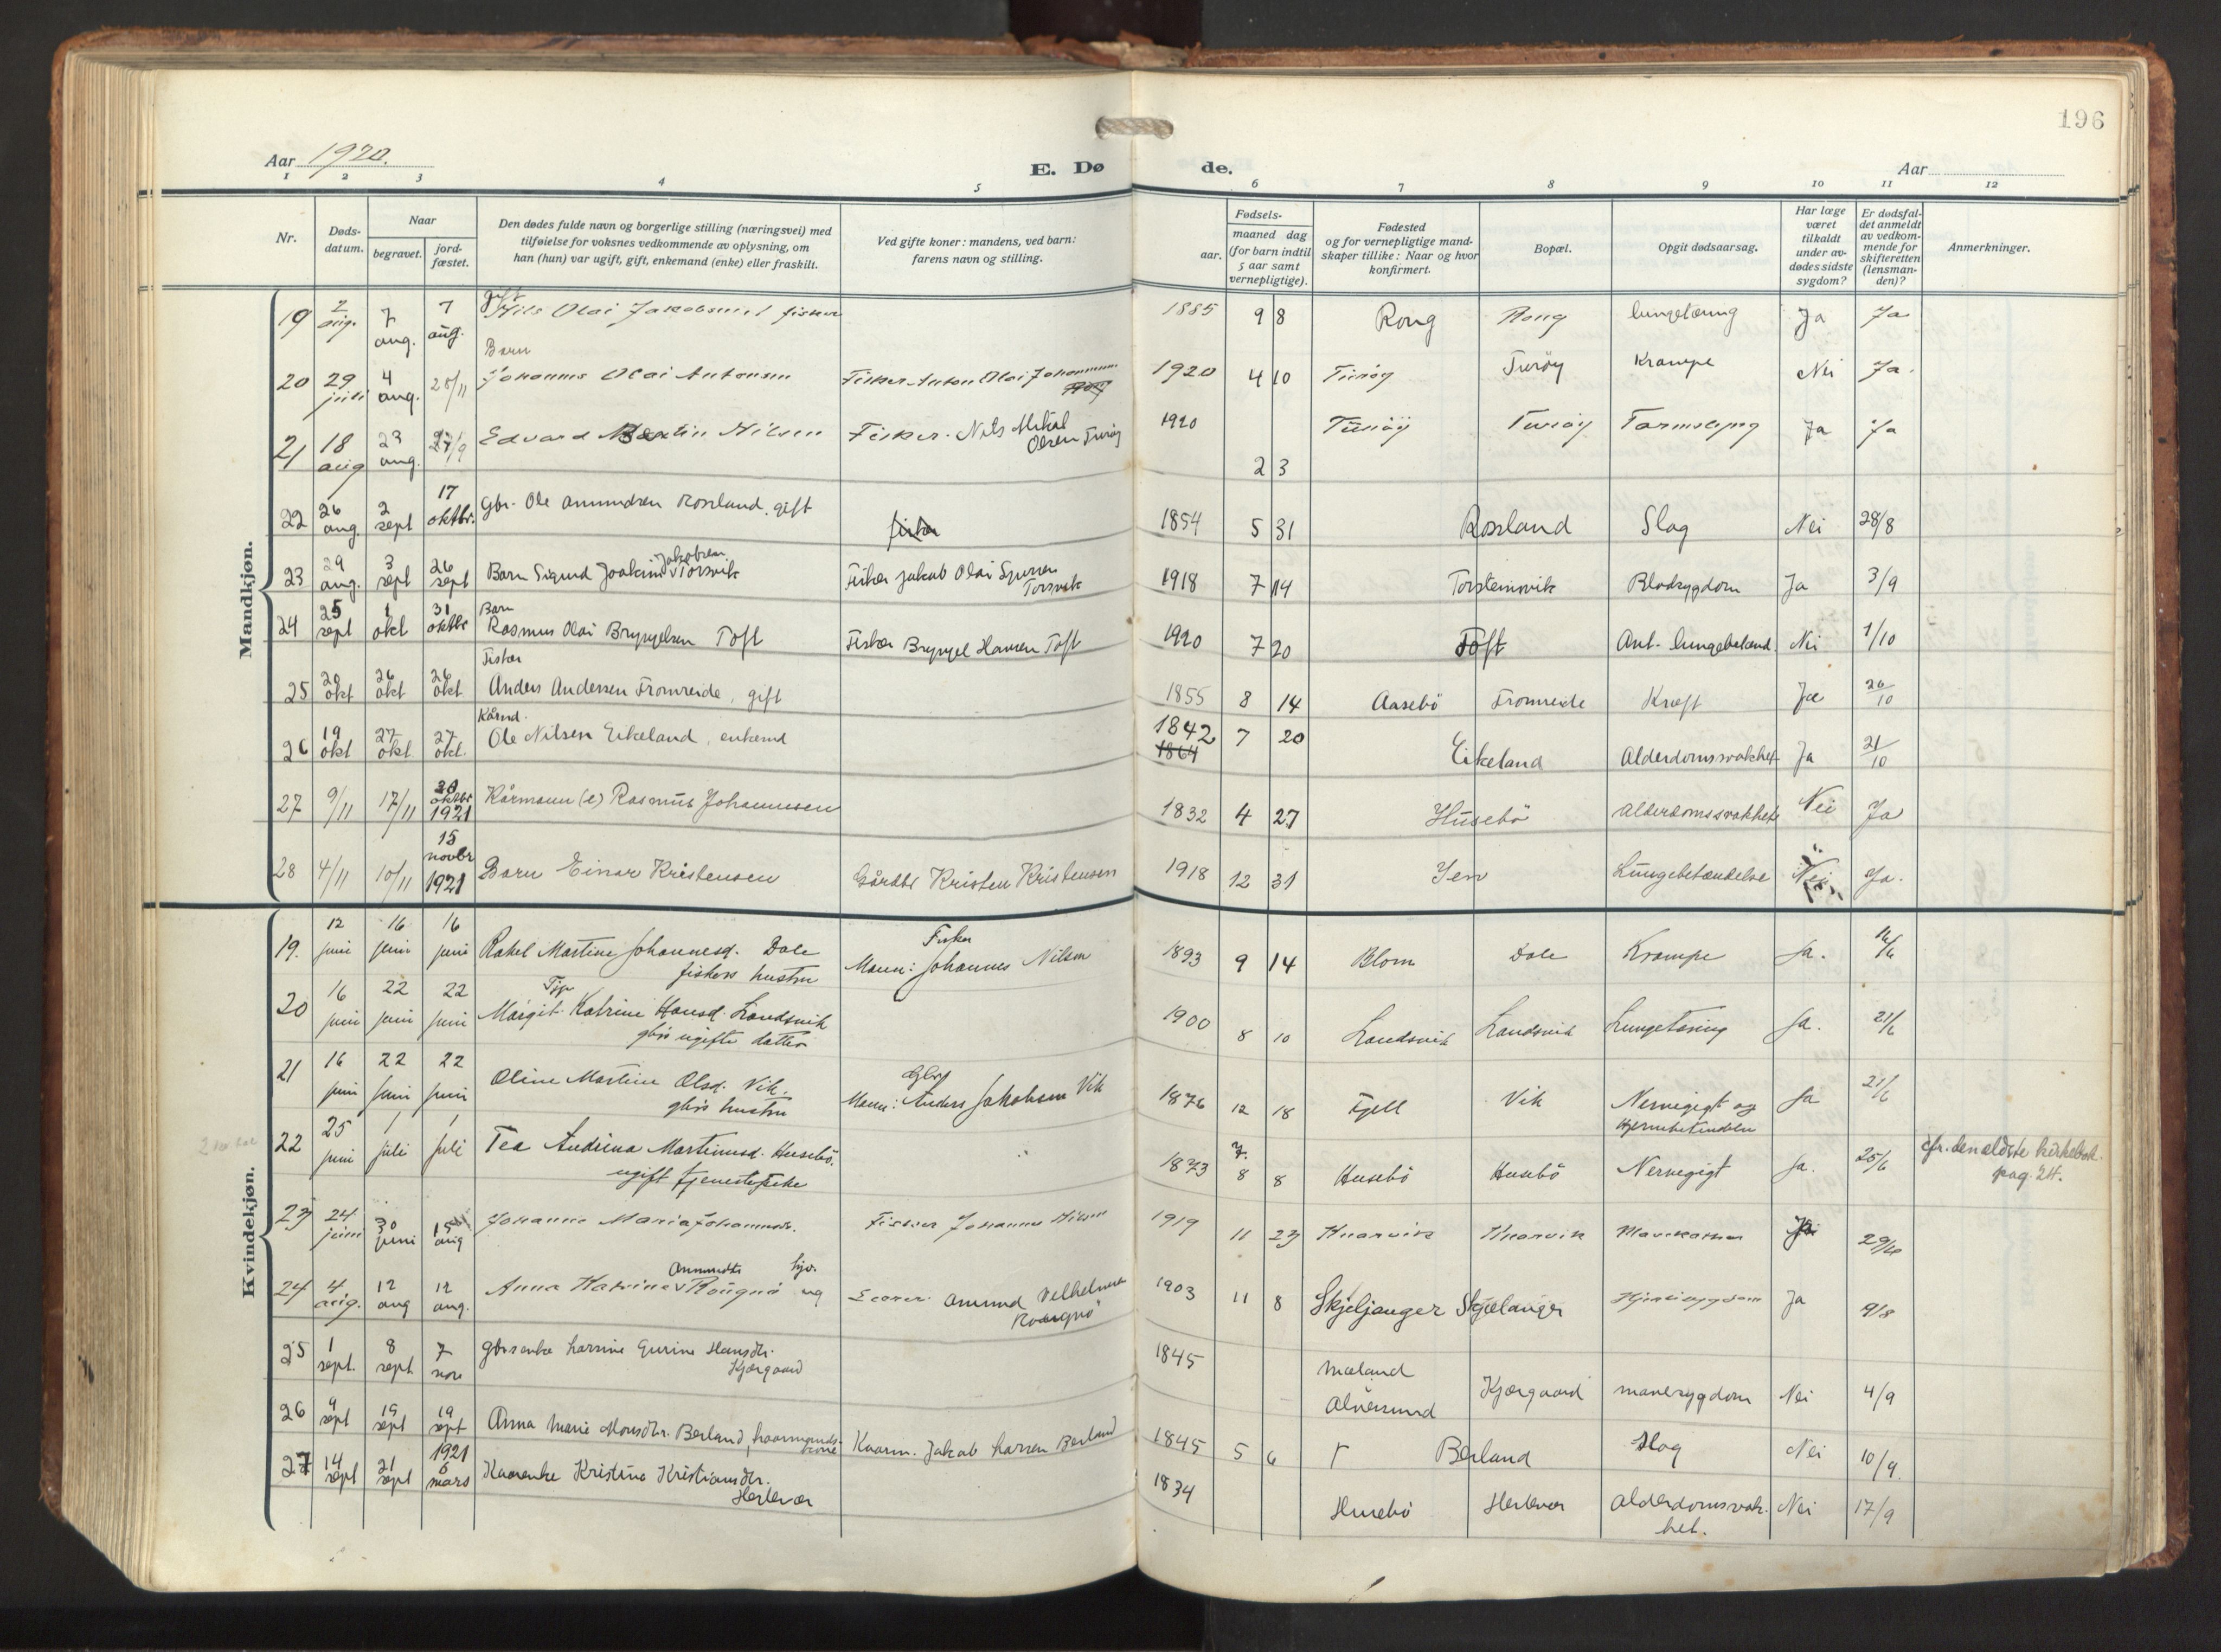 196
Aar 1920.
E. Dø de.
Aar
1 2 3 4 5 6 7 8 9 10 11 12
Nr.
Døds-datum.
Naar
begravet.
jord-fæstet.
Den dødes fulde navn og borgerlige stilling (næringsvei) med
tilføielse for voksnes vedkommende av oplysning, om
han (hun) var ugift, gift, enkemand (enke) eller fraskilt.
Ved gifte koner: mandens, ved barn:
farens navn og stilling.
Fødsels-
aar.
maaned dag
(for barn indtil
5 aar samt
vernepligtige).
Fødested
og for vernepligtige mand-
skaper tillike: Naar og hvor
konfirmert.
Bopæl.
Opgit dødsaarsag.
Har læge
været
tilkaldt
under av-
dødes sidste
sygdom?
Er dødsfal-
det anmeldt
av vedkom-
mende for
skifteretten
(lensman-
den)?
Anmerkninger.
Mandkjøn.
19 2 aug. 7 aug. 7 aug. gift Nils Olai Jakobsen fisker 1885 9 8 Rong Rong lungetæring Ja Ja
Barn
20 29 juli 4 aug. 28/11 Johannes Olai Antonsen Fisker Anton Olai Johannessen 1920 4 10 Turøy Turøy Krampe Nei Ja.
21 18 aug 23 aug. 27/9 Edvard Martin Nilsen Fisker. Nils Mikal Olsen Turøy 1920 2 3 Turøy Turøy Ja Ja
22 26 aug. 2 sept 17 oktbr. Gbr. Ole Amundsen Rossland, gift fisker 1854 5 31 Rossland Slag Nei 28/8
23 29 aug. 3 sept 26 sept Barn Sigurd Joakim Jakobsen Torsvik Fisker Jakob Olai Torsvik 1918 7 14 Torsteinsvik Blodsygdom Ja 3/9
24 25 sept 1 okt 31 oktbr Barn
Rasmus Olai Brynjelsen Toft Fisker Brynjel Hansen Toft 1920 7 20 Toft Ant. lungebetænd. Nei 1/10
Fisker
25 20 okt 26 okt 26 okt Anders Andersen Fromreide, gift 1855 8 14 Aasebö Fromreide Kræft Ja 26/10
Kårmd.
26 19 okt 27 okt. 27 okt. Ole Nilsen Eikeland, enkemd 1842 1864 7 20 Eikeland Alderdomssvakhet Ja 21/10
27 9/11 17/11 30 oktbr 1921 Kårmann (e) Rasmus Johannesen 1832 4 27 Husebö Alderdomssvakhet Nei Ja
28 4/11 10/11 15 novbr 1921 Barn Einar Kristensen Gårdbr Kristen Kristensen 1918 12 31 Lungebetændelse Nei Ja.
Kvindekjøn.
19. 12 juni 16 juni 16 juni Rakel Martine Johannesd. Dale
fiskers hustru Fisker
Mann: Johannes Nilsen 1893 9 14 Blom Dale Krampe Ja. 16/6
20 16 juni 22 juni 22 juni Margit Katrine Hansd. Landsvik
gbrs ugifte datter 1900 8 10 Landsvik Landsvik Lungetæring Ja. 21/6
21 16 juni 22 juni 22 juni Oline Martine Olsd. Vik.
gbrs hustru Gbr
Mann: Anders Jakobsen Vik 1876 12 18 Fjell Vik Nervegigt og Hjernebetændelse Ja 21/6
22 25 juni 1 juli 1 juli Tea Andrina Martinusd. Husebö.
ugift tjenestepike 1873 7. 8 8 Husebö Husebö Nervegigt Ja. 25/6 cfr. den ældste kirkebok pag. 24.
23 24 juni 30 juni 15 aug Johanne Maria Johannesdr. Fisker Johannes Nilsen 1919 11 23 Knarvik Knarvik Ja 29/6
24 4 aug. 12 aug 12 aug. Anna Katrine Amundsdtr Rongnö ug Amund Velhelmsen
Rongnö 1903 11 8 Skjeljanger Skjælanger Hjertesygdom Ja 9/8
25 1 sept. 8 sept 7 nov Gbrsenke Larsine Gurine Hansdtr.
Kjærgaard 1845 Mæland
Alversund Kjærgaard mavesygdom Nei 4/9
26 4 sept 19 sept 19 sept Anna Marie Monsdtr. Berland, kaarmandskone Kaarm. Jakob Larsen Berland 1845 5 6 Berland Slag Nei 10/9.
27 14 sept 21 sept 1921 6 mars Kaarenke Kristine Kristiansdtr.
Herlevær 1834 Husebö Herlevær Alderdomssvak-
het. Nei 17/9